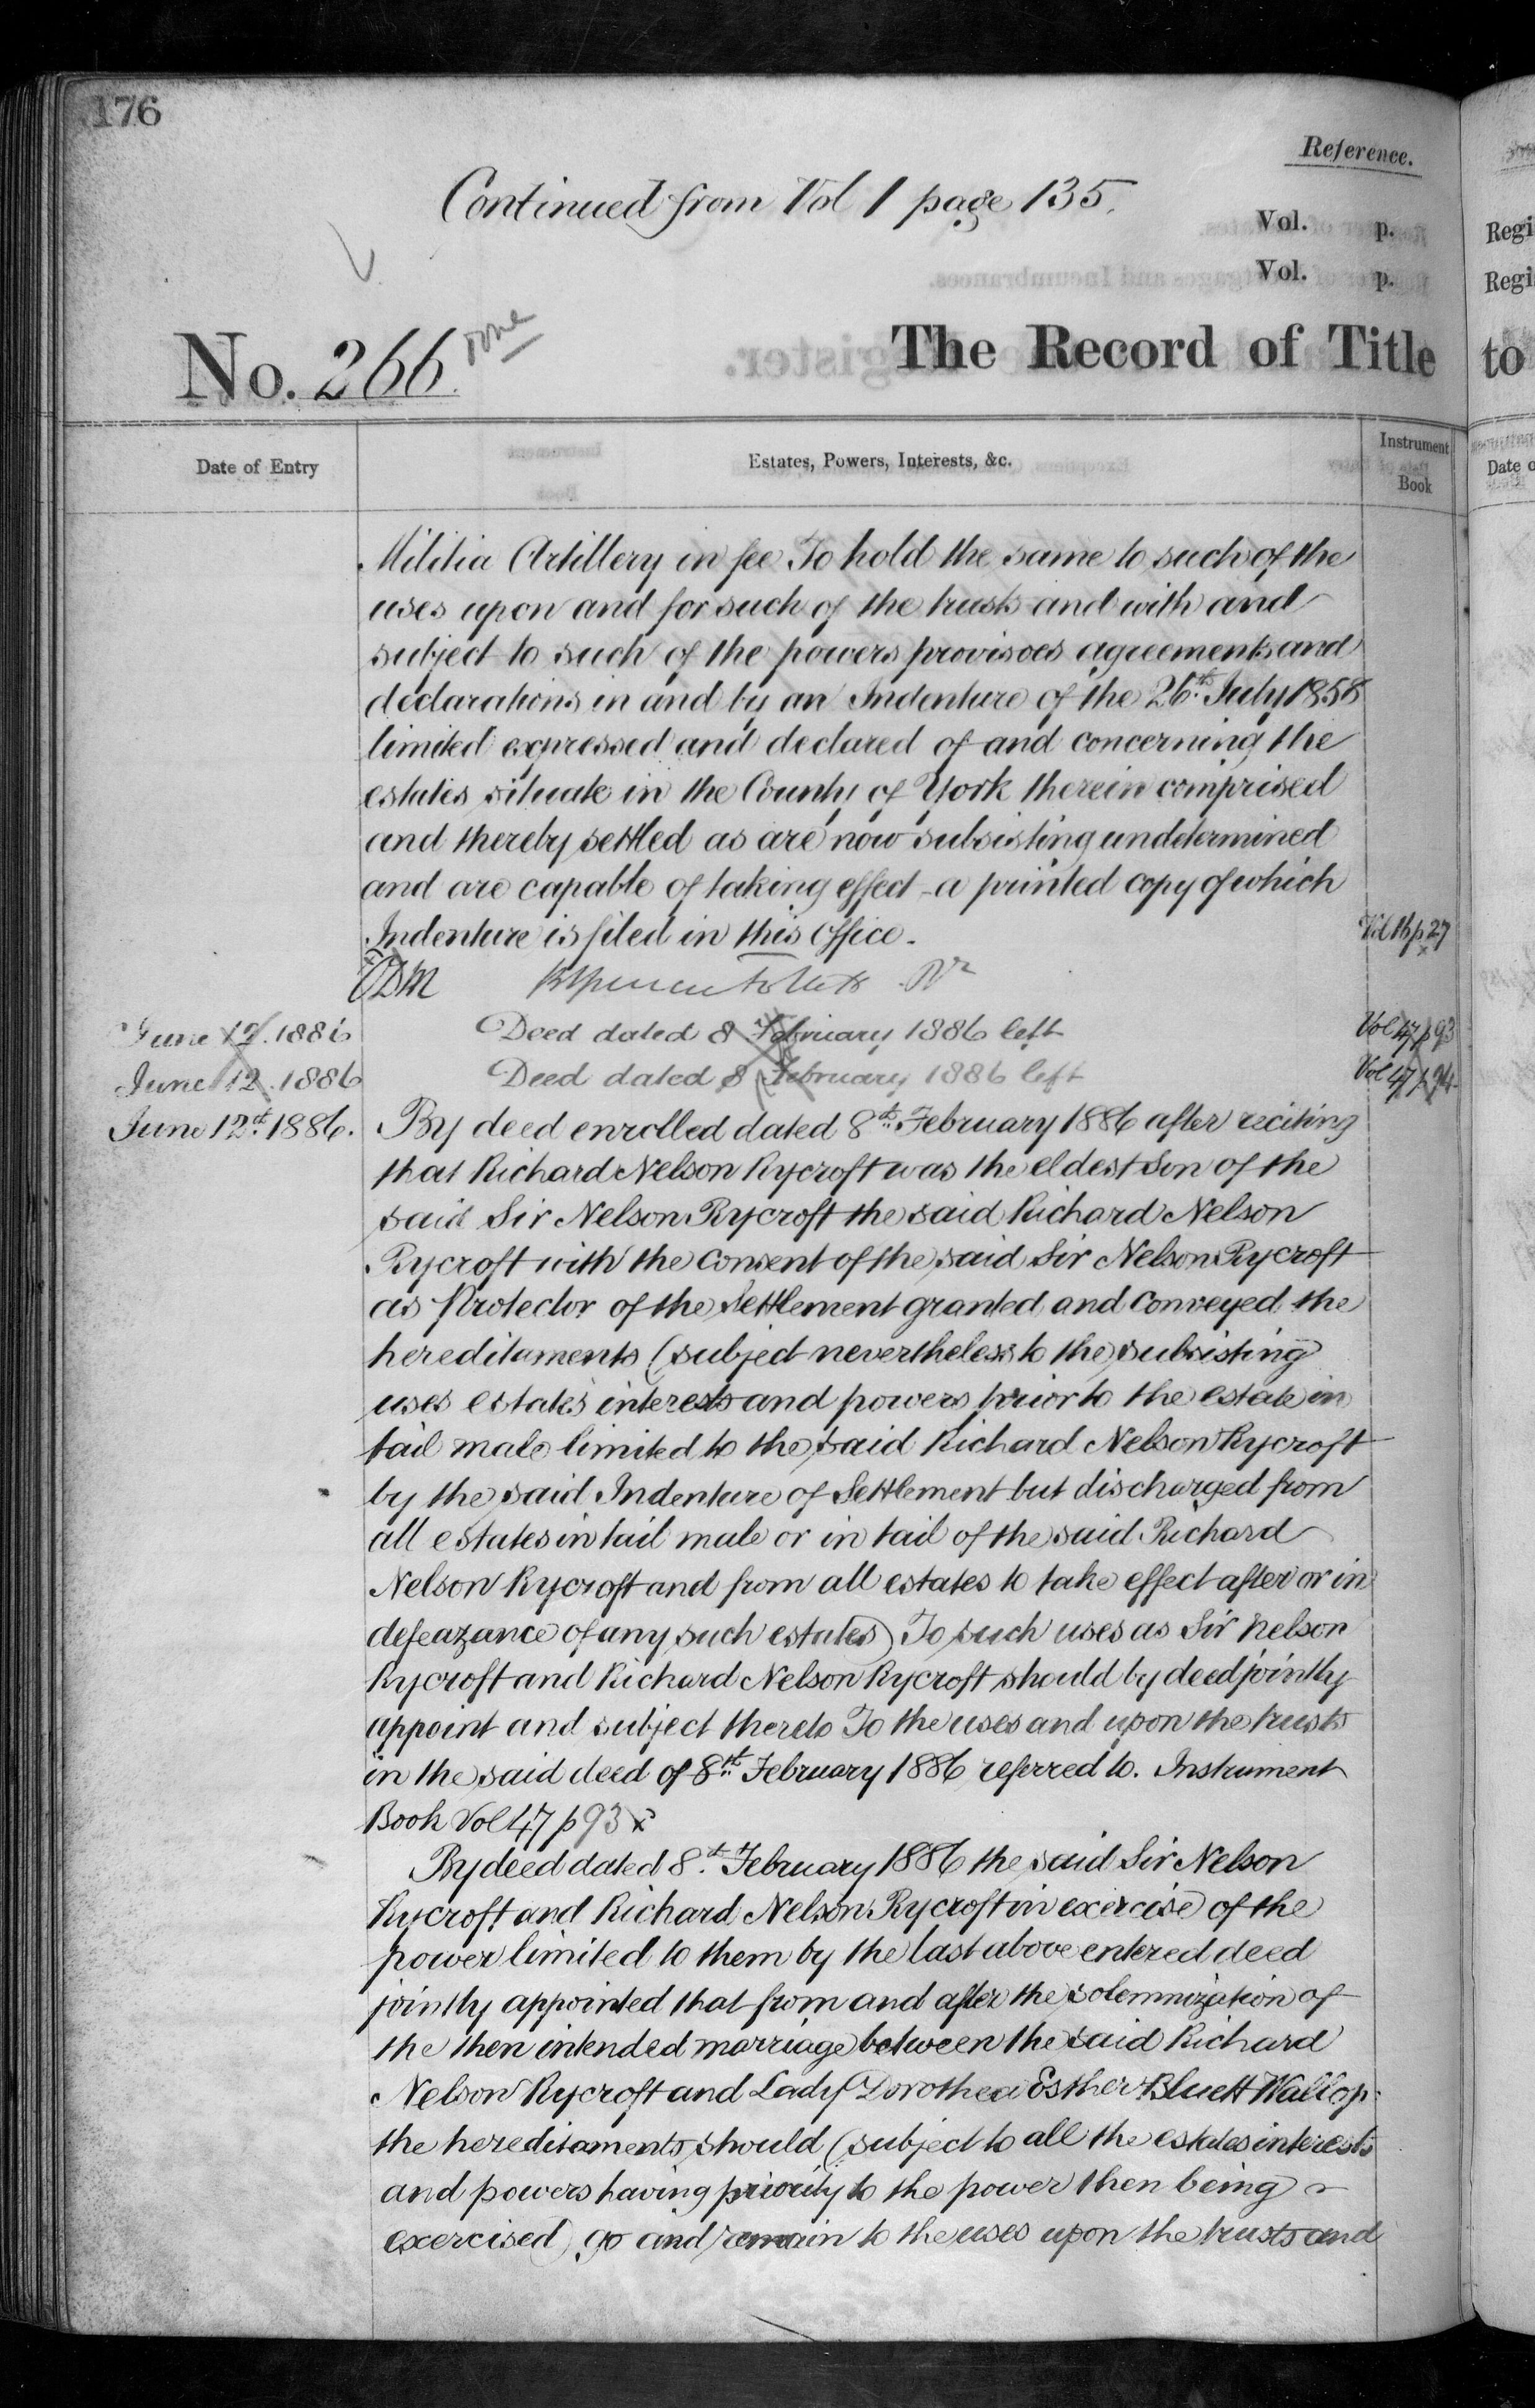 176
Reference.
Continued from Vol 1 page 135.
Vol. p.
Vol. p.
No. 266 done
The Record of Title
Date of Entry
Estates, Powers, Interests, &c.
Instrument
Book
Militia Artillery in fee To hold the same to such of the
uses upon and for such of the trusts and with and
subject to such of the powers provisoes agreements and
declarations in and by an Indenture of the 26th July 1858
limited expressed and declared of and concerning the
estates situate in the County of York therein comprised
and thereby settled as are now subsisting undetermined
and are capable of taking effect - a printed copy of which
Indenture is filed in this Office. Vol 16 p 27
June 12. 1886 Deed dated 8 February 1886 left Vol 47 p 93
June 12. 1886 Deed dated 8 February 1886 left Vol 47 p 94
June 12th 1886. By deed enrolled dated 8th February 1886 after reciting
that Richard Nelson Rycroft was the eldest Son of the
said Sir Nelson Rycroft the said Richard Nelson
Rycroft with the Consent of the said Sir Nelson Rycroft
as Protector of the Settlement granted and conveyed the
hereditaments (subject nevertheless to the subsisting
uses estates interests and powers prior to the estate in
tail male limited to the said Richard Nelson Rycroft
by the said Indenture of Settlement but discharged from
all estates in tail male or in tail of the said Richard
Nelson Rycroft and from all estates to take effect after or in
defeazance of any such estates) To such uses as Sir Nelson
Rycroft and Richard Nelson Rycroft should by deed jointly
appoint and subject thereto To the uses and upon the trusts
in the said deed of 8th February 1886 referred to. Instrument
Book Vol 47 p 93
By deed dated 8th February 1886 the said Sir Nelson
Rycroft and Richard Nelson Rycroft in exercise of the
power limited to them by the last above entered deed
jointly appointed that from and after the solemnization of
the then intended marriage between the said Richard
Nelson Rycroft and Lady Dorothea Esther Bluett Wallop
the hereditaments should (subject to all the estates interests
and powers having priority to the power then being
exercised) go and remain to the uses upon the trusts and
Regi
Regi
to
Date o